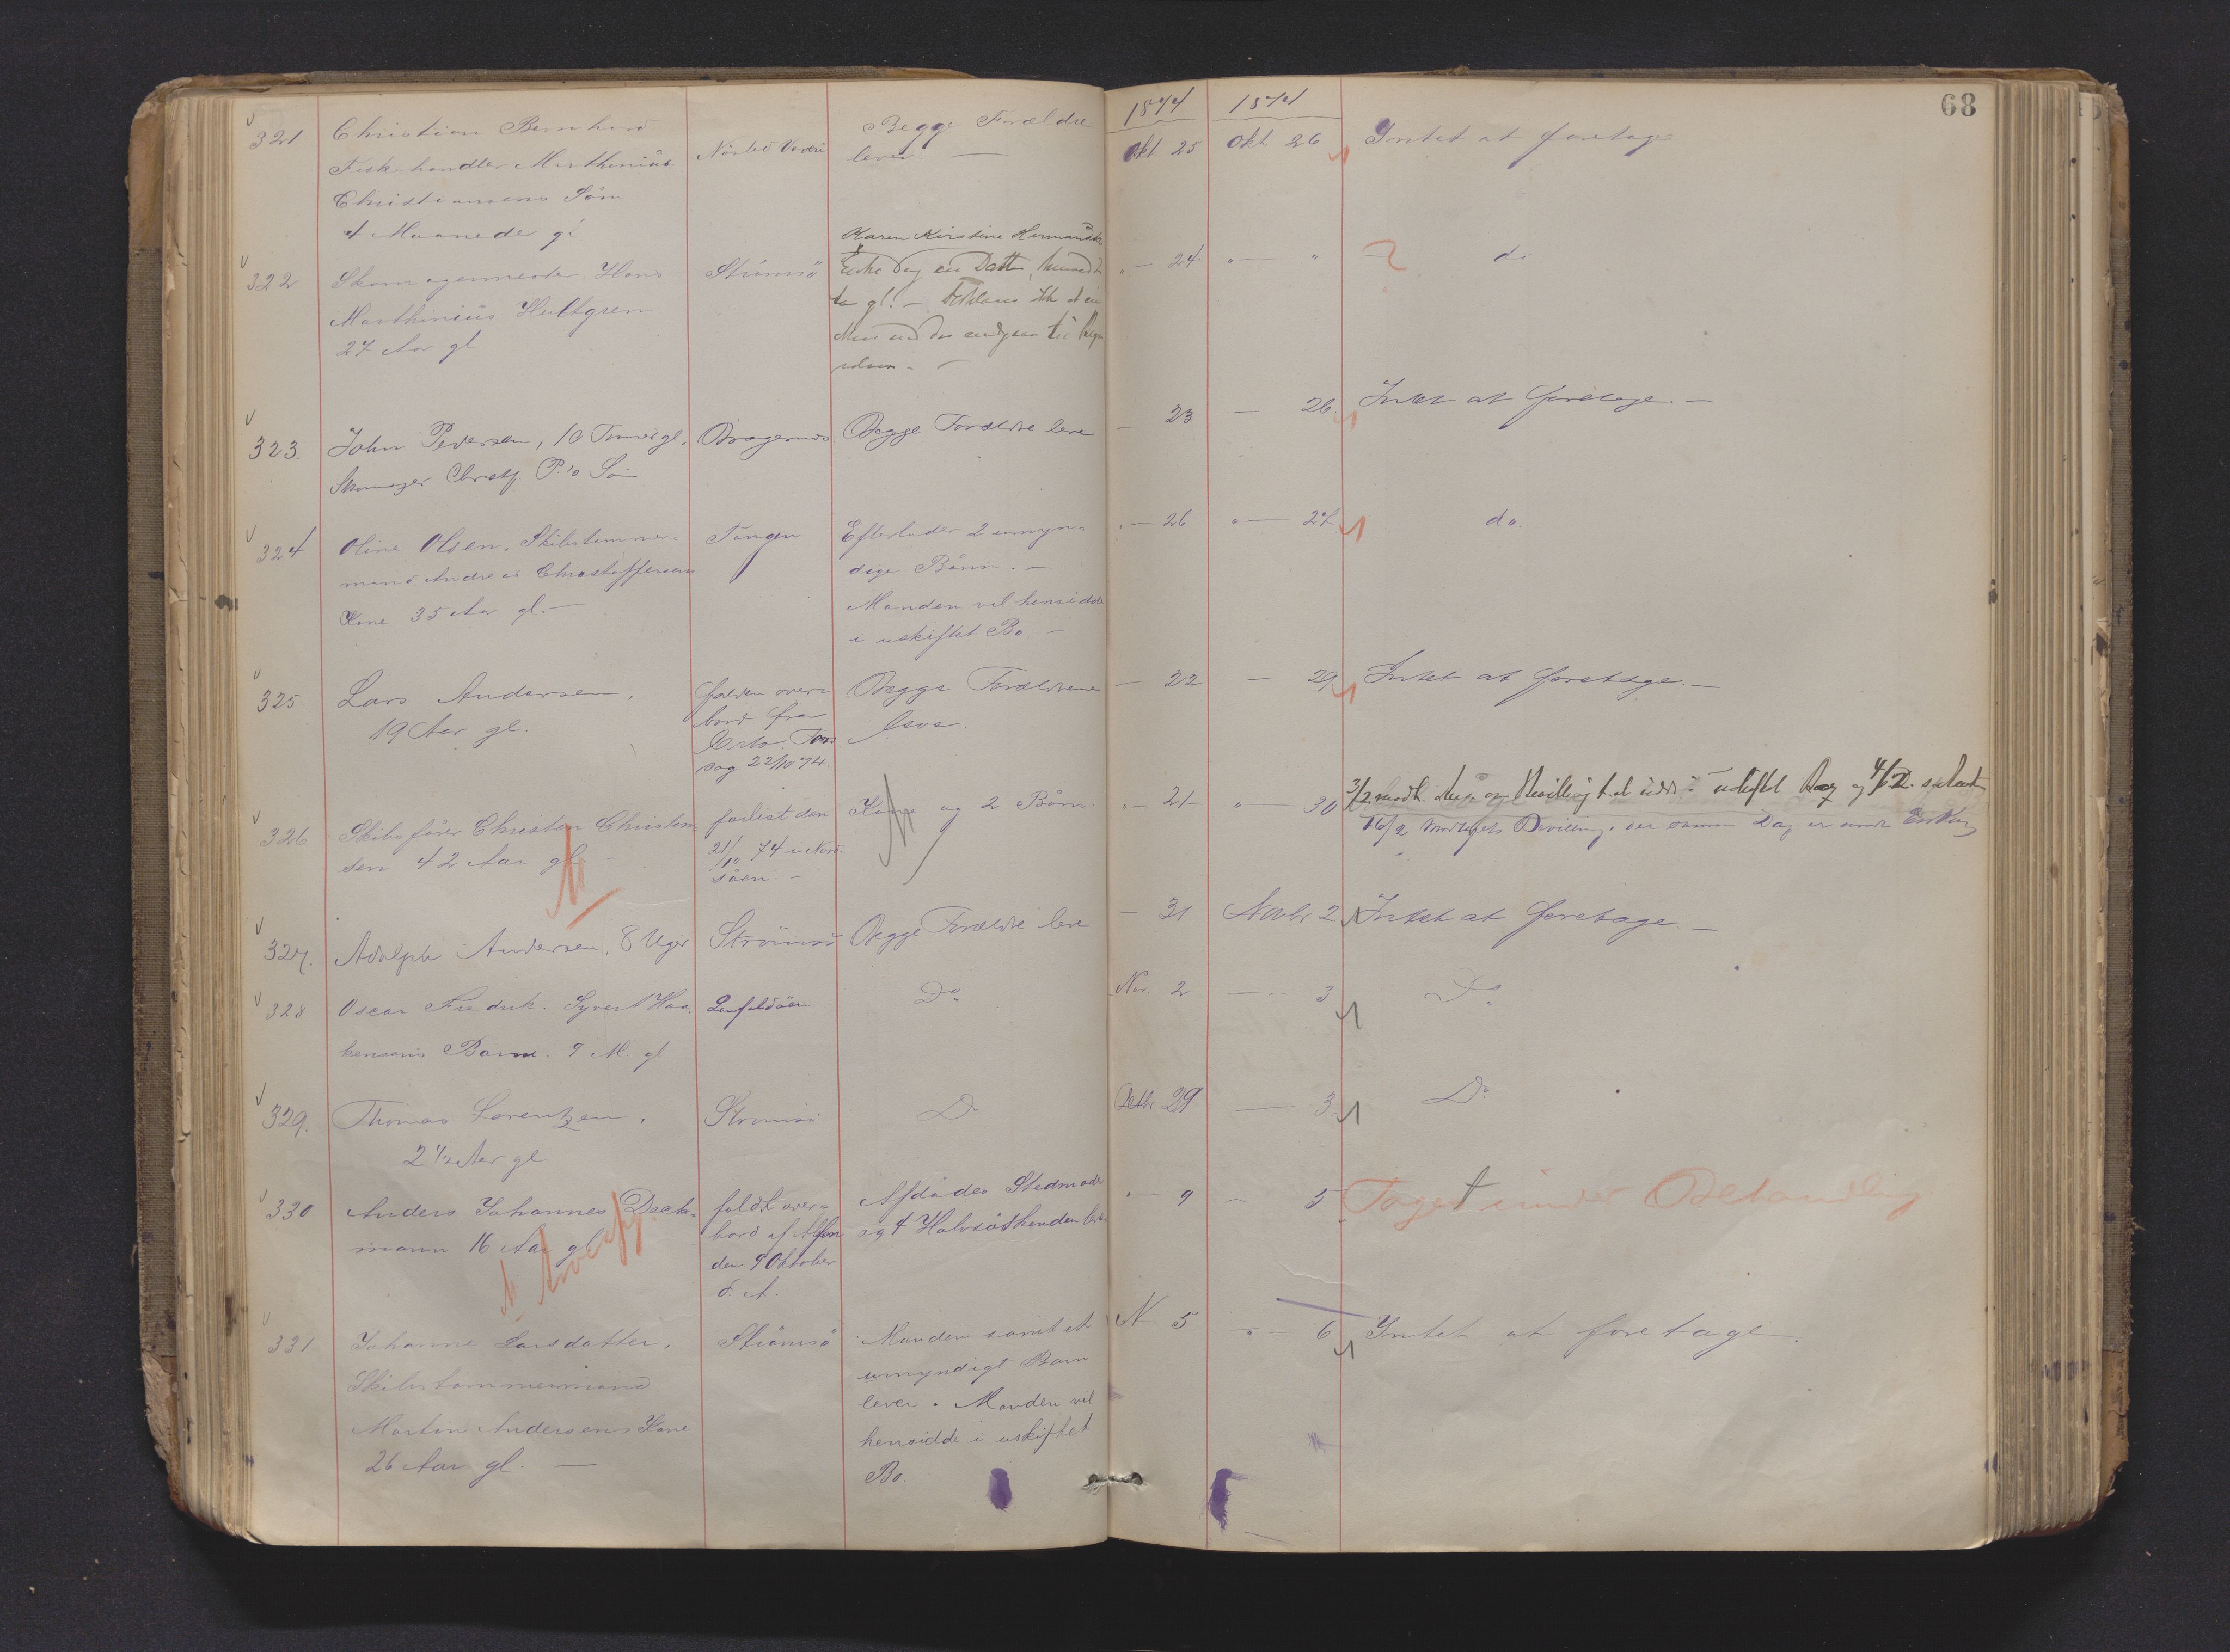 68
1874 1874
321 Christian Bernhard
Fiskehandler Marthinius
Christiansens Sön
4 Maaneder gl
Nösted
Begge Forældre
lever. —
Okt 25 Okt 26 Intet at foretage
322 Skomagermester Hans
Marthinius Hultgren
27 Aar gl
Strömsö
Karen Kirstine
Enke og en Datter
" — 24 " — " do
323. John Pedersen, 10 Timer gl.
Skomager Christf. P.s Sön
Bragernes
Begge Forældre leve
— 23 — 26. Intet at foretage. —
324 Oline Olsen, Skibstømmer-
mand Andreas Christoffersens
Kone 35 Aar gl. —
Tangen
Efterlader 2 umyn-
dige Børn. —
Manden vil hensidde
i uskiftet Bo. —
" — 26 " — 27 do.
325. Lars Andersen,
19 Aar gl.
falden over-
bord fra
22/10 74.
Begge Forældrene
leve.
— 22 — 29. Intet at foretage. —
326 Skibsfører Christen Christen-
sen 42 Aar gl. —
forlist den
21/10 74 i Nord-
søen. —
Kone og 2 Børn.
" — 21 " — 30
3/2 uskiftet Bo og 4/2
16/2 Bevilling, der samme Dag er
327. Adolph Andersen, 8 Uger
Strömsö
Begge Forældre leve
— 31 Novbr 2. Intet at foretage. —
328 Oscar Fredrik. Syvert Haa-
kensens Barn. 9 M. gl
Do
Nov. 2 — 3 Do
329. Thomas Lorentzen,
2 1/2 Aar gl
Strömsö
Do
Octbr 29 — 3. Do
330 Anders Johannes Dæch-
mann 16 Aar gl
faldt over-
bord af
den 9 Oktober
d. A.
Afdødes Stedmoder
og 4 Halvsøskende lever
" — 9 — 5 Taget under Behandling
331 Johanne Larsdatter,
Skibstømmermand
Martin Andersens Kone
26 Aar gl. —
Strömsö
Manden samt et
umyndigt Barn
lever. Manden vil
hensidde i uskiftet
Bo.
N 5 " — 6 Intet at foretage.